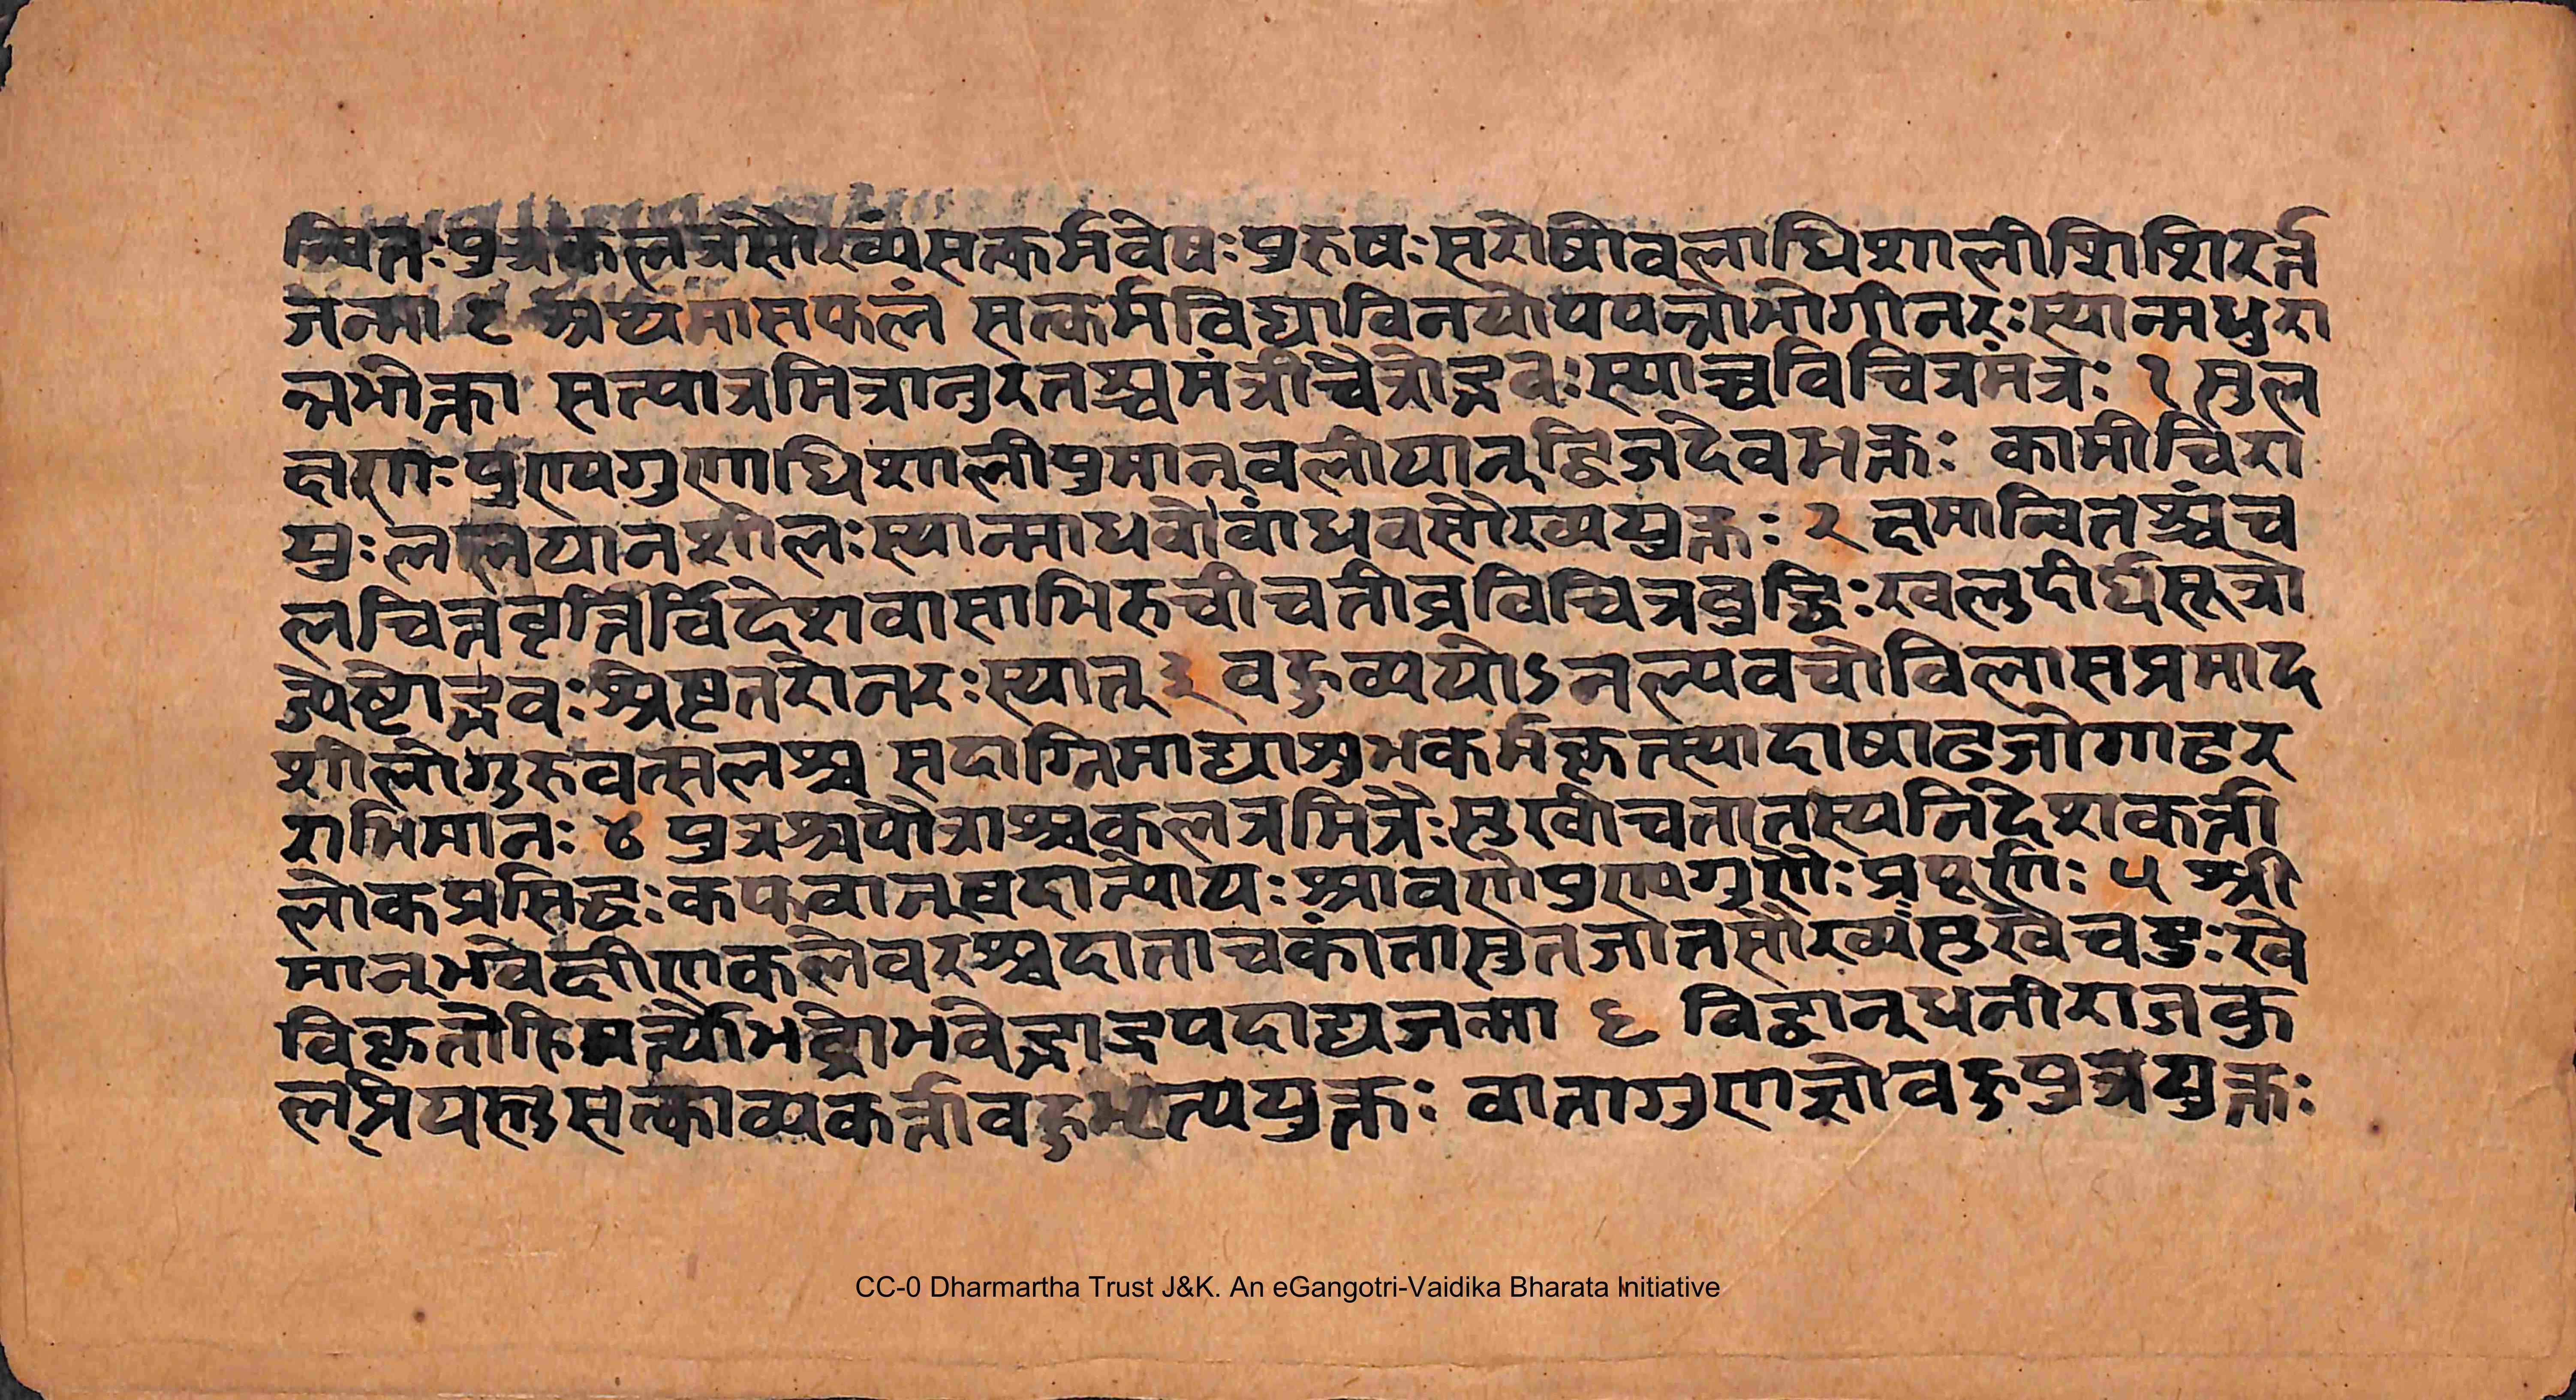 न्वितः पुत्रकलत्रसौख्यं सत्कर्मवेषः पुरुषः सरोषो वलाधिशाली शिशिरर्त्तु
जन्मा ६ अथ मासफलं सत्कर्मविद्याविनयोपपन्नो भोगी नरः स्यान्मधुरा
न्नभोक्ता सत्पात्रमित्रानुरतश्च मंत्री चैत्रोद्भवः स्याच्च विचित्रमंत्रः १ सुल
क्षणः पुण्यगुणाधिशाली पुमान् वलीयान् द्विजदेवभक्तः कामी चिरा
युः जलपानशीलः स्यान्माधवो वांधवसौख्ययुक्तः २ क्षमान्वितश्चंच
लचित्तवृत्तिर्विदेशवासाभिरुची च तीव्र विचित्रबुद्धिः खलु दीर्घसूत्रो
ज्येष्टोद्भवः श्रेष्टतरो नरः स्यात् ३ वहुव्ययोऽनल्पवचोविलास प्रमाद
शीलो गुरुवत्सलश्च सदाग्निमाद्याशुभकर्मकृत्स्यादाषाढजो गाढर
राभिमानः ४ पुत्रश्च पौत्राश्च कलत्रमित्रैः सुखी च तातस्य निदेशकर्त्ता
लोकप्रसिद्धः कफवान् वदान्यो यः श्रावणे पुण्यगुणैः प्रपूर्णः ५ श्री
मान् भवेत्क्षीणकलेवरश्च दाता च कांतासुतजातसौख्यं सुखे च दुःखे
विकृतो हि मर्त्यो भद्रो भवेद्भाद्रपदाद्यजन्मा ६ विद्वान् धनी राजकु
लप्रियस्तु सत्काव्यकर्त्ता वहुभृत्ययुक्तः दाता गुणज्ञो वहुपुत्रयुक्तः
CC-0 Dharmartha Trust J&K. An eGangotri-Vaidika Bharata Initiative